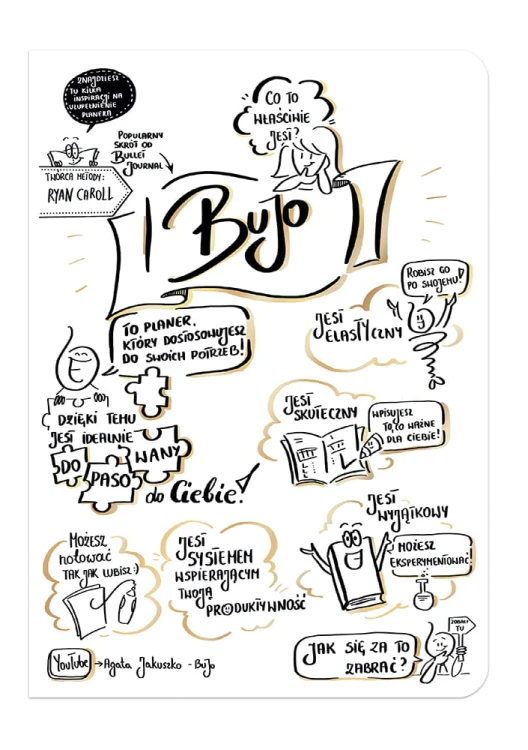 ZNAJDZIESZ
TU KILKA
INSPIRACJI NA
UZUPEŁNIENIE
PLANERA
CO TO
WŁAŚCIWIE
JEST?
POPULARNY
SKRÓT OD
BULLET
JOURNAL
TWÓRCA METODY:
RYAN CAROLL
BUJO
ROBISZ GO
PO SWOJEMU!
JEST
ELASTYCZNY
TO PLANER,
KTÓRY DOSTOSOWUJESZ
DO SWOICH POTRZEB!
DZIĘKI TEMU
JEST IDEALNIE
DO
PASO
WANY
do Ciebie!
JEST
SKUTECZNY
WPISUJESZ
TO, CO WAŻNE
DLA CIEBIE!
JEST
WYJĄTKOWY
MOŻESZ
EKSPERYMENTOWAĆ!
MOŻESZ
notować
TAK JAK LUBISZ :)
JEST
SYSTEMEM
WSPIERAJĄCYM
TWOJĄ
PRODUKTYWNOŚĆ
YouTube → Agata Jakuszko - BuJo
JAK SIĘ ZA TO
ZABRAĆ?
ZOBACZ
TU